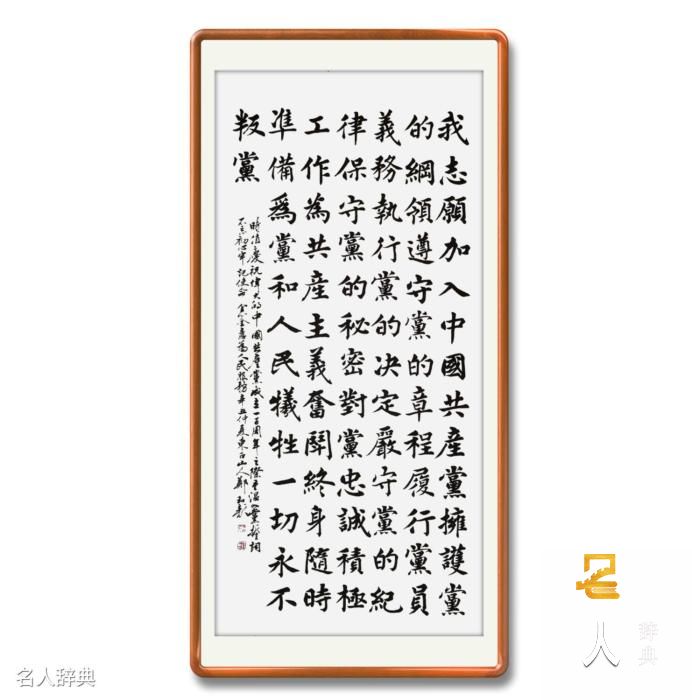 我志願加入中國共產黨擁護黨
的綱領遵守黨的章程履行黨員
義務執行黨的决定嚴守黨的紀
律保守黨的秘密對黨忠誠積極
工作為共產主義奮鬥終身隨時
準備爲黨和人民犧牲一切永不
叛黨
時值慶祝偉大的中國共產黨成立一百周年之際重溫入黨誓詞
不忘初心牢記使命全心全意為人民服務辛丑仲夏東白山人鄭
名人辞典
名人辞典